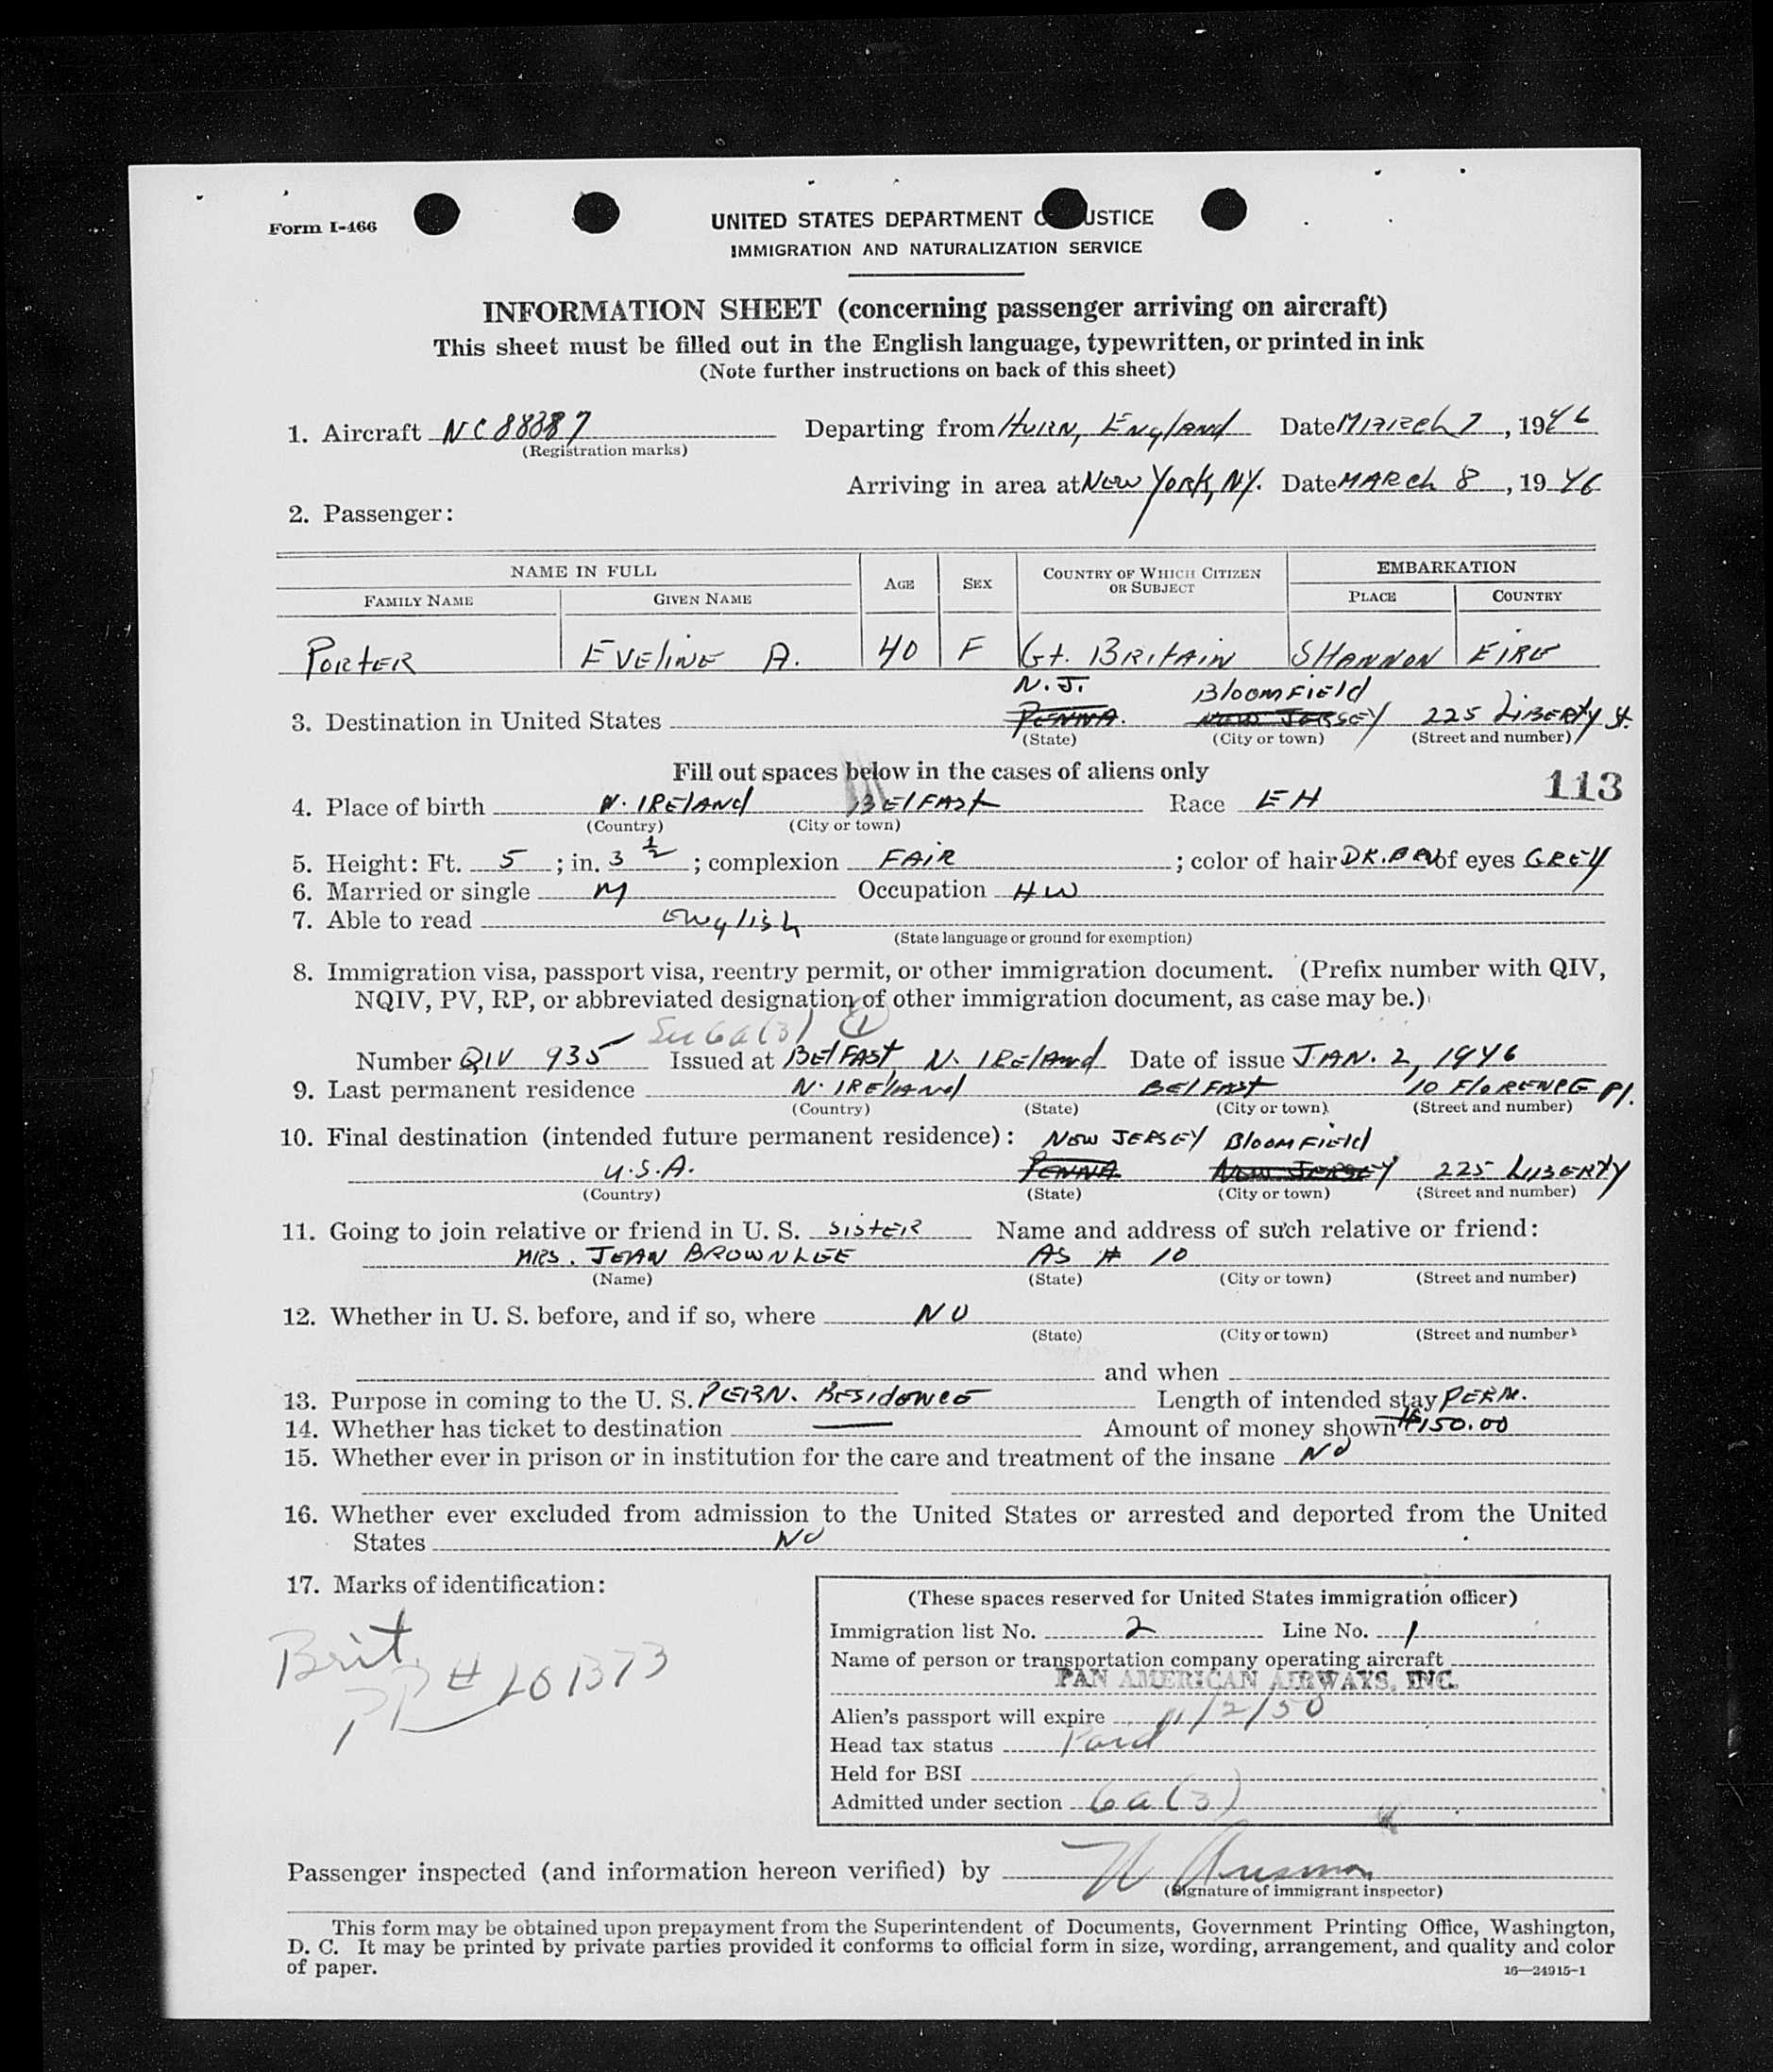 Form I-466
UNITED STATES DEPARTMENT O USTICE
IMMIGRATION AND NATURALIZATION SERVICE
INFORMATION SHEET (concerning passenger arriving on aircraft)
This sheet must be filled out in the English language, typewritten, or printed in ink
(Note further instructions on back of this sheet)
1. Aircraft NC 88387 Departing from HURN, ENGLAND Date MARCH 7, 1946
(Registration marks)
Arriving in area at NEW YORK, NY. Date MARCH 8, 1946
2. Passenger:
NAME IN FULL AGE SEX COUNTRY OF WHICH CITIZEN OR SUBJECT EMBARKATION
FAMILY NAME GIVEN NAME PLACE COUNTRY
PORTER EVELINE A. 40 F Gt. BRITAIN SHANNON EIRE
N.J. BLOOMFIELD
3. Destination in United States PENNA. NEW JERSEY 225 LIBERTY St.
(State) (City or town) (Street and number)
Fill out spaces below in the cases of aliens only
113
4. Place of birth N. IRELAND BELFAST Race EH
(Country) (City or town)
5. Height: Ft. 5; in. 3 1/2; complexion FAIR; color of hair DK. BRN of eyes GREY
6. Married or single M Occupation HW
7. Able to read ENGLISH
(State language or ground for exemption)
8. Immigration visa, passport visa, reentry permit, or other immigration document. (Prefix number with QIV,
NQIV, PV, RP, or abbreviated designation of other immigration document, as case may be.)
Sec 6a(3) 1
Number QIV 935 Issued at BELFAST, N. IRELAND Date of issue JAN. 2, 1946
9. Last permanent residence N. IRELAND BELFAST 10 FLORENCE Pl.
(Country) (State) (City or town) (Street and number)
10. Final destination (intended future permanent residence): NEW JERSEY BLOOMFIELD
U.S.A. PENNA NEW JERSEY 225 LIBERTY
(Country) (State) (City or town) (Street and number)
11. Going to join relative or friend in U. S. SISTER Name and address of such relative or friend:
MRS. JEAN BROWNLEE AS # 10
(Name) (State) (City or town) (Street and number)
12. Whether in U. S. before, and if so, where NO
(State) (City or town) (Street and number)
and when
13. Purpose in coming to the U. S. PERM. RESIDENCE Length of intended stay PERM.
14. Whether has ticket to destination — Amount of money shown $150.00
15. Whether ever in prison or in institution for the care and treatment of the insane NO
16. Whether ever excluded from admission to the United States or arrested and deported from the United
States NO
17. Marks of identification:
Brit.
PP # 101373
(These spaces reserved for United States immigration officer)
Immigration list No. 2 Line No. 1
Name of person or transportation company operating aircraft
PAN AMERICAN AIRWAYS, INC.
Alien's passport will expire 11/2/50
Head tax status Paid
Held for BSI
Admitted under section 6a(3)
Passenger inspected (and information hereon verified) by
(Signature of immigrant inspector)
This form may be obtained upon prepayment from the Superintendent of Documents, Government Printing Office, Washington,
D. C. It may be printed by private parties provided it conforms to official form in size, wording, arrangement, and quality and color
of paper.
16—24915-1